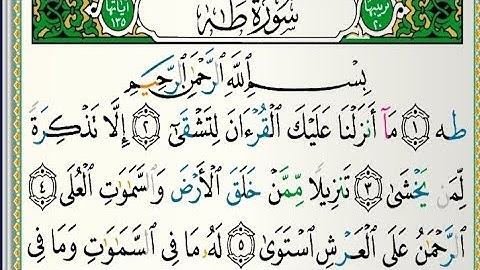 آياتها ١٣٥ سُورَةُ طه ترتيبها ٢٠
بِسْمِ اللَّهِ الرَّحْمَٰنِ الرَّحِيمِ
طه ١ مَآ أَنزَلْنَا عَلَيْكَ الْقُرْءَانَ لِتَشْقَىٰٓ ٢ إِلَّا تَذْكِرَةً
لِّمَن يَخْشَىٰ ٣ تَنزِيلًا مِّمَّنْ خَلَقَ الْأَرْضَ وَالسَّمَٰوَٰتِ الْعُلَى ٤
الرَّحْمَٰنُ عَلَى الْعَرْشِ اسْتَوَىٰ ٥ لَهُۥ مَا فِى السَّمَٰوَٰتِ وَمَا فِى